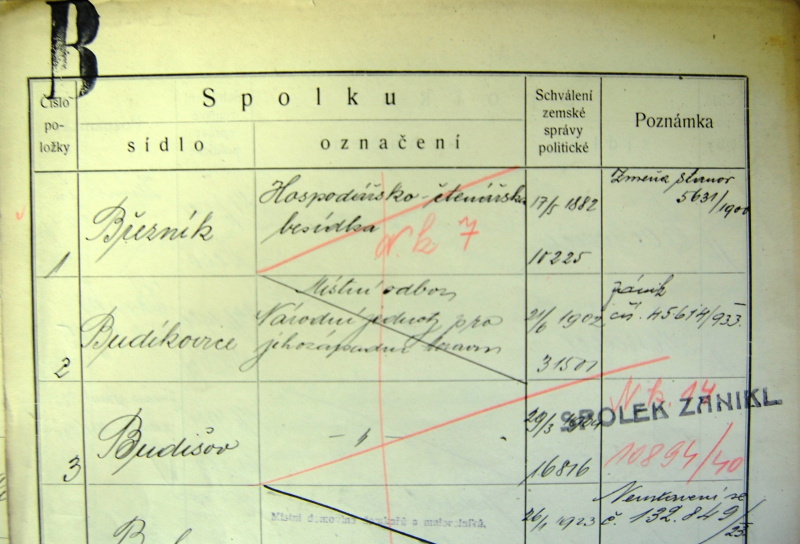 B
Číslo
po-
ložky
Spolku
sídlo
označení
Schválení
zemské
správy
politické
Poznámka
1
Březník
Hospodářsko-čtenářská
besídka
N. k. 7
17/5 1882
10225
Změna stanov
5631/1900
2
Budíkovice
Místní odbor
Národní jednoty pro
jihozápadní Moravu
21/6 1902
31501
zánik
čís. 45614/933.
3
Budišov
— " —
29/3 1904
16816
N. k. 14
SPOLEK ZANIKL
10894/40
Místní
a
26/1 1923
Neustavení se
č. 132.849/23.